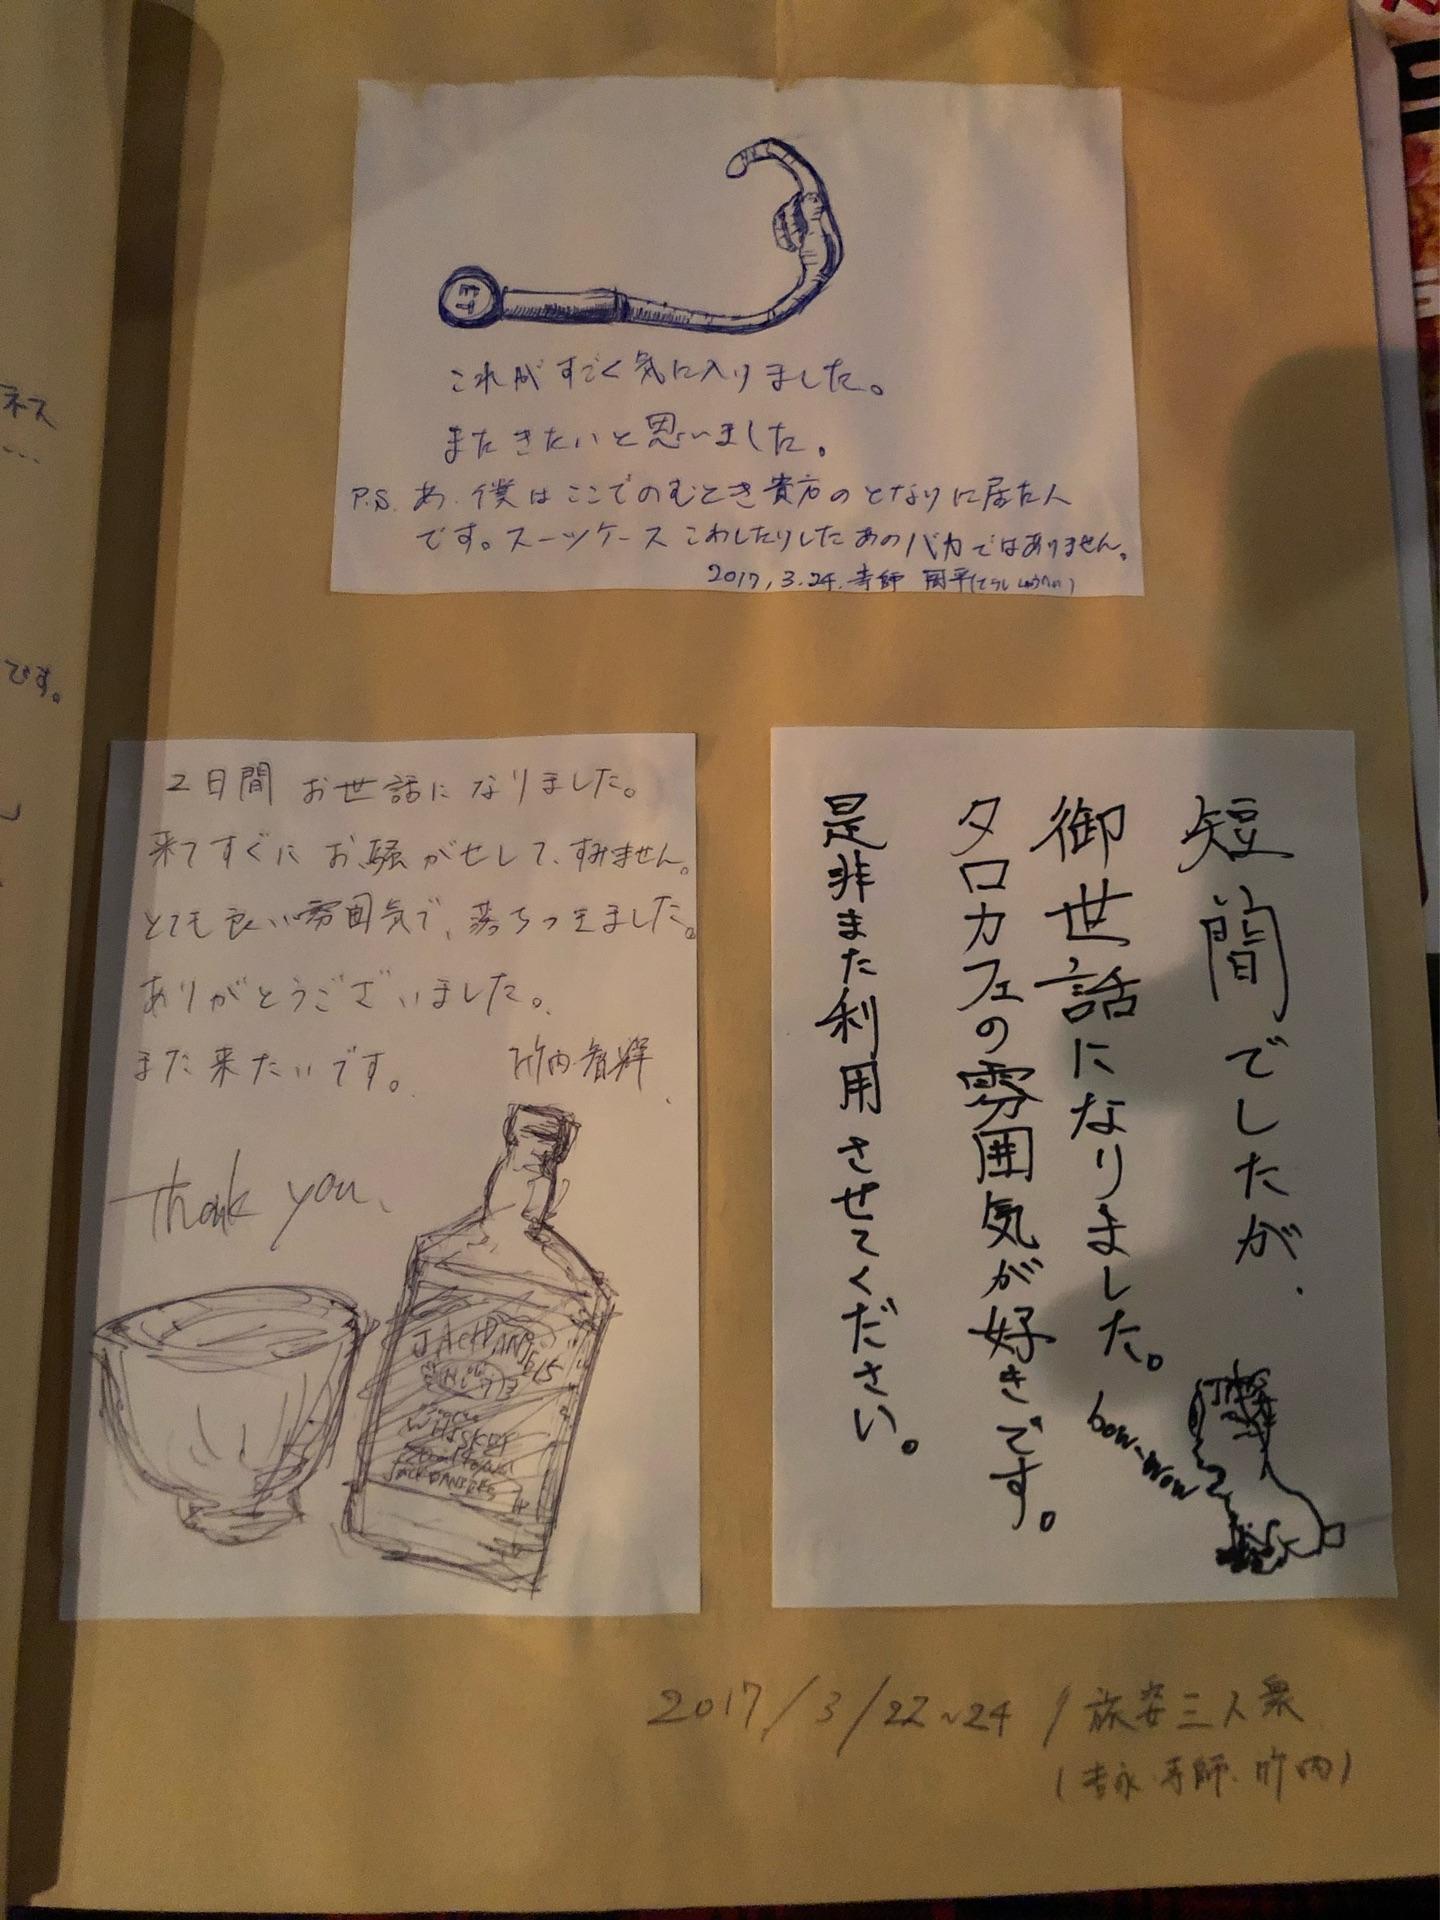 これがすごく気に入りました。
またきたいと思いました。
P.S. あ、僕はここでのむとき貴方のとなりに居た人
です。スーツケースこわしたりしたあのバカではありません。
2017, 3.24. 寺師 周平(てらし しゅうへい)
2日間 お世話になりました。
来てすぐに お騒がせして、すみません。
とても良い雰囲気で、落ちつきました。
ありがとうございました。
また来たいです。 竹内
Thank you、
JACK DANIEL'S
WHISKEY
JACK DANIELS
短間でしたが、
御世話になりました。
タロカフェの雰囲気が好きです。
是非また利用させてください。
bow-wow
2017/3/22~24 / 旅 三人衆
(吉永、寺師、竹内)
ネス
…
です。